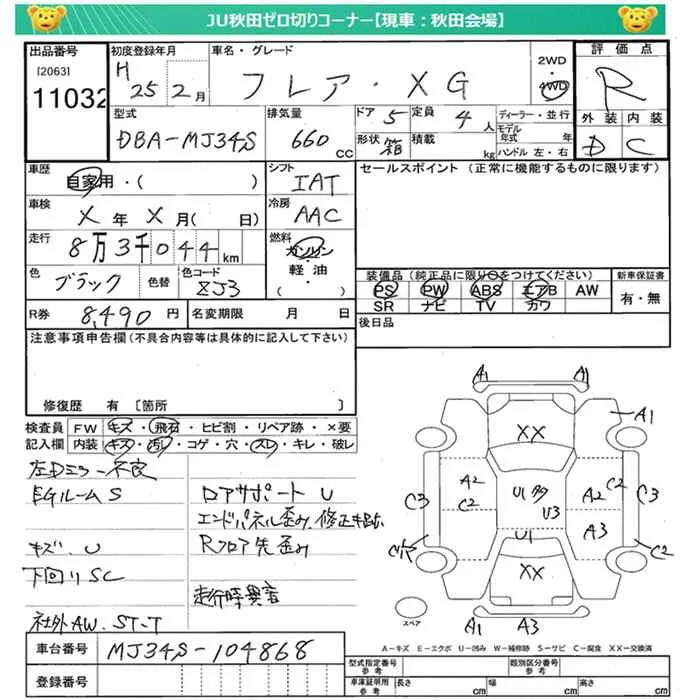 JU秋田ゼロ切りコーナー【現車：秋田会場】
出品番号
[2063]
11032
初度登録年月
H 25 2月
車名・グレード
フレア・XG
2WD
4WD
評価点
R
外装 内装
D C
型式
DBA-MJ34S
排気量
660 CC
ドア 5
定員 4人
形状 箱
積載 kg
ディーラー・並行
モデル年式 年
ハンドル 左・右
車歴
自家用・( )
シフト
IAT
セールスポイント (正常に機能するものに限ります)
車検
X年X月( 日)
冷房
AAC
走行
8万3千044km
燃料
ガソリン
・
軽油
( )
色
ブラック
色替
色コード
ZJ3
装備品(純正品に限り○をつけてください)
PS PW ABS エアB AW
SR ナビ TV カワ
新車保証書
有・無
R券 8,490円
名変期限 月 日
後日品
注意事項申告欄(不具合内容等は具体的に記入して下さい)
修復歴 有 〔箇所 〕
検査員記入欄
FW キズ・飛石・ヒビ割・リペア跡・×要
内装 キズ・汚レ・コゲ・穴・スレ・キレ・破レ
左Dミラー不良
EGルームS
キズ、U
下回りSC
社外AW、ST-T
ロアサポートU
エンドパネル歪み、修正跡
Rフロア先歪み
走行時異音
A1 A1
A1
XX
A2
C2
U1
U3
A2
C2
C3
C3
A3
U1
C2
XX
A1 A3
スペア
A-キズ E-エクボ U-凹み W-補修跡 S-サビ C-腐食 XX-交換済
車台番号
MJ34S-104868
登録番号
型式指定番号
参考
類別区分番号
参考
車庫証明用
参考
長さ cm
幅 cm
高さ cm